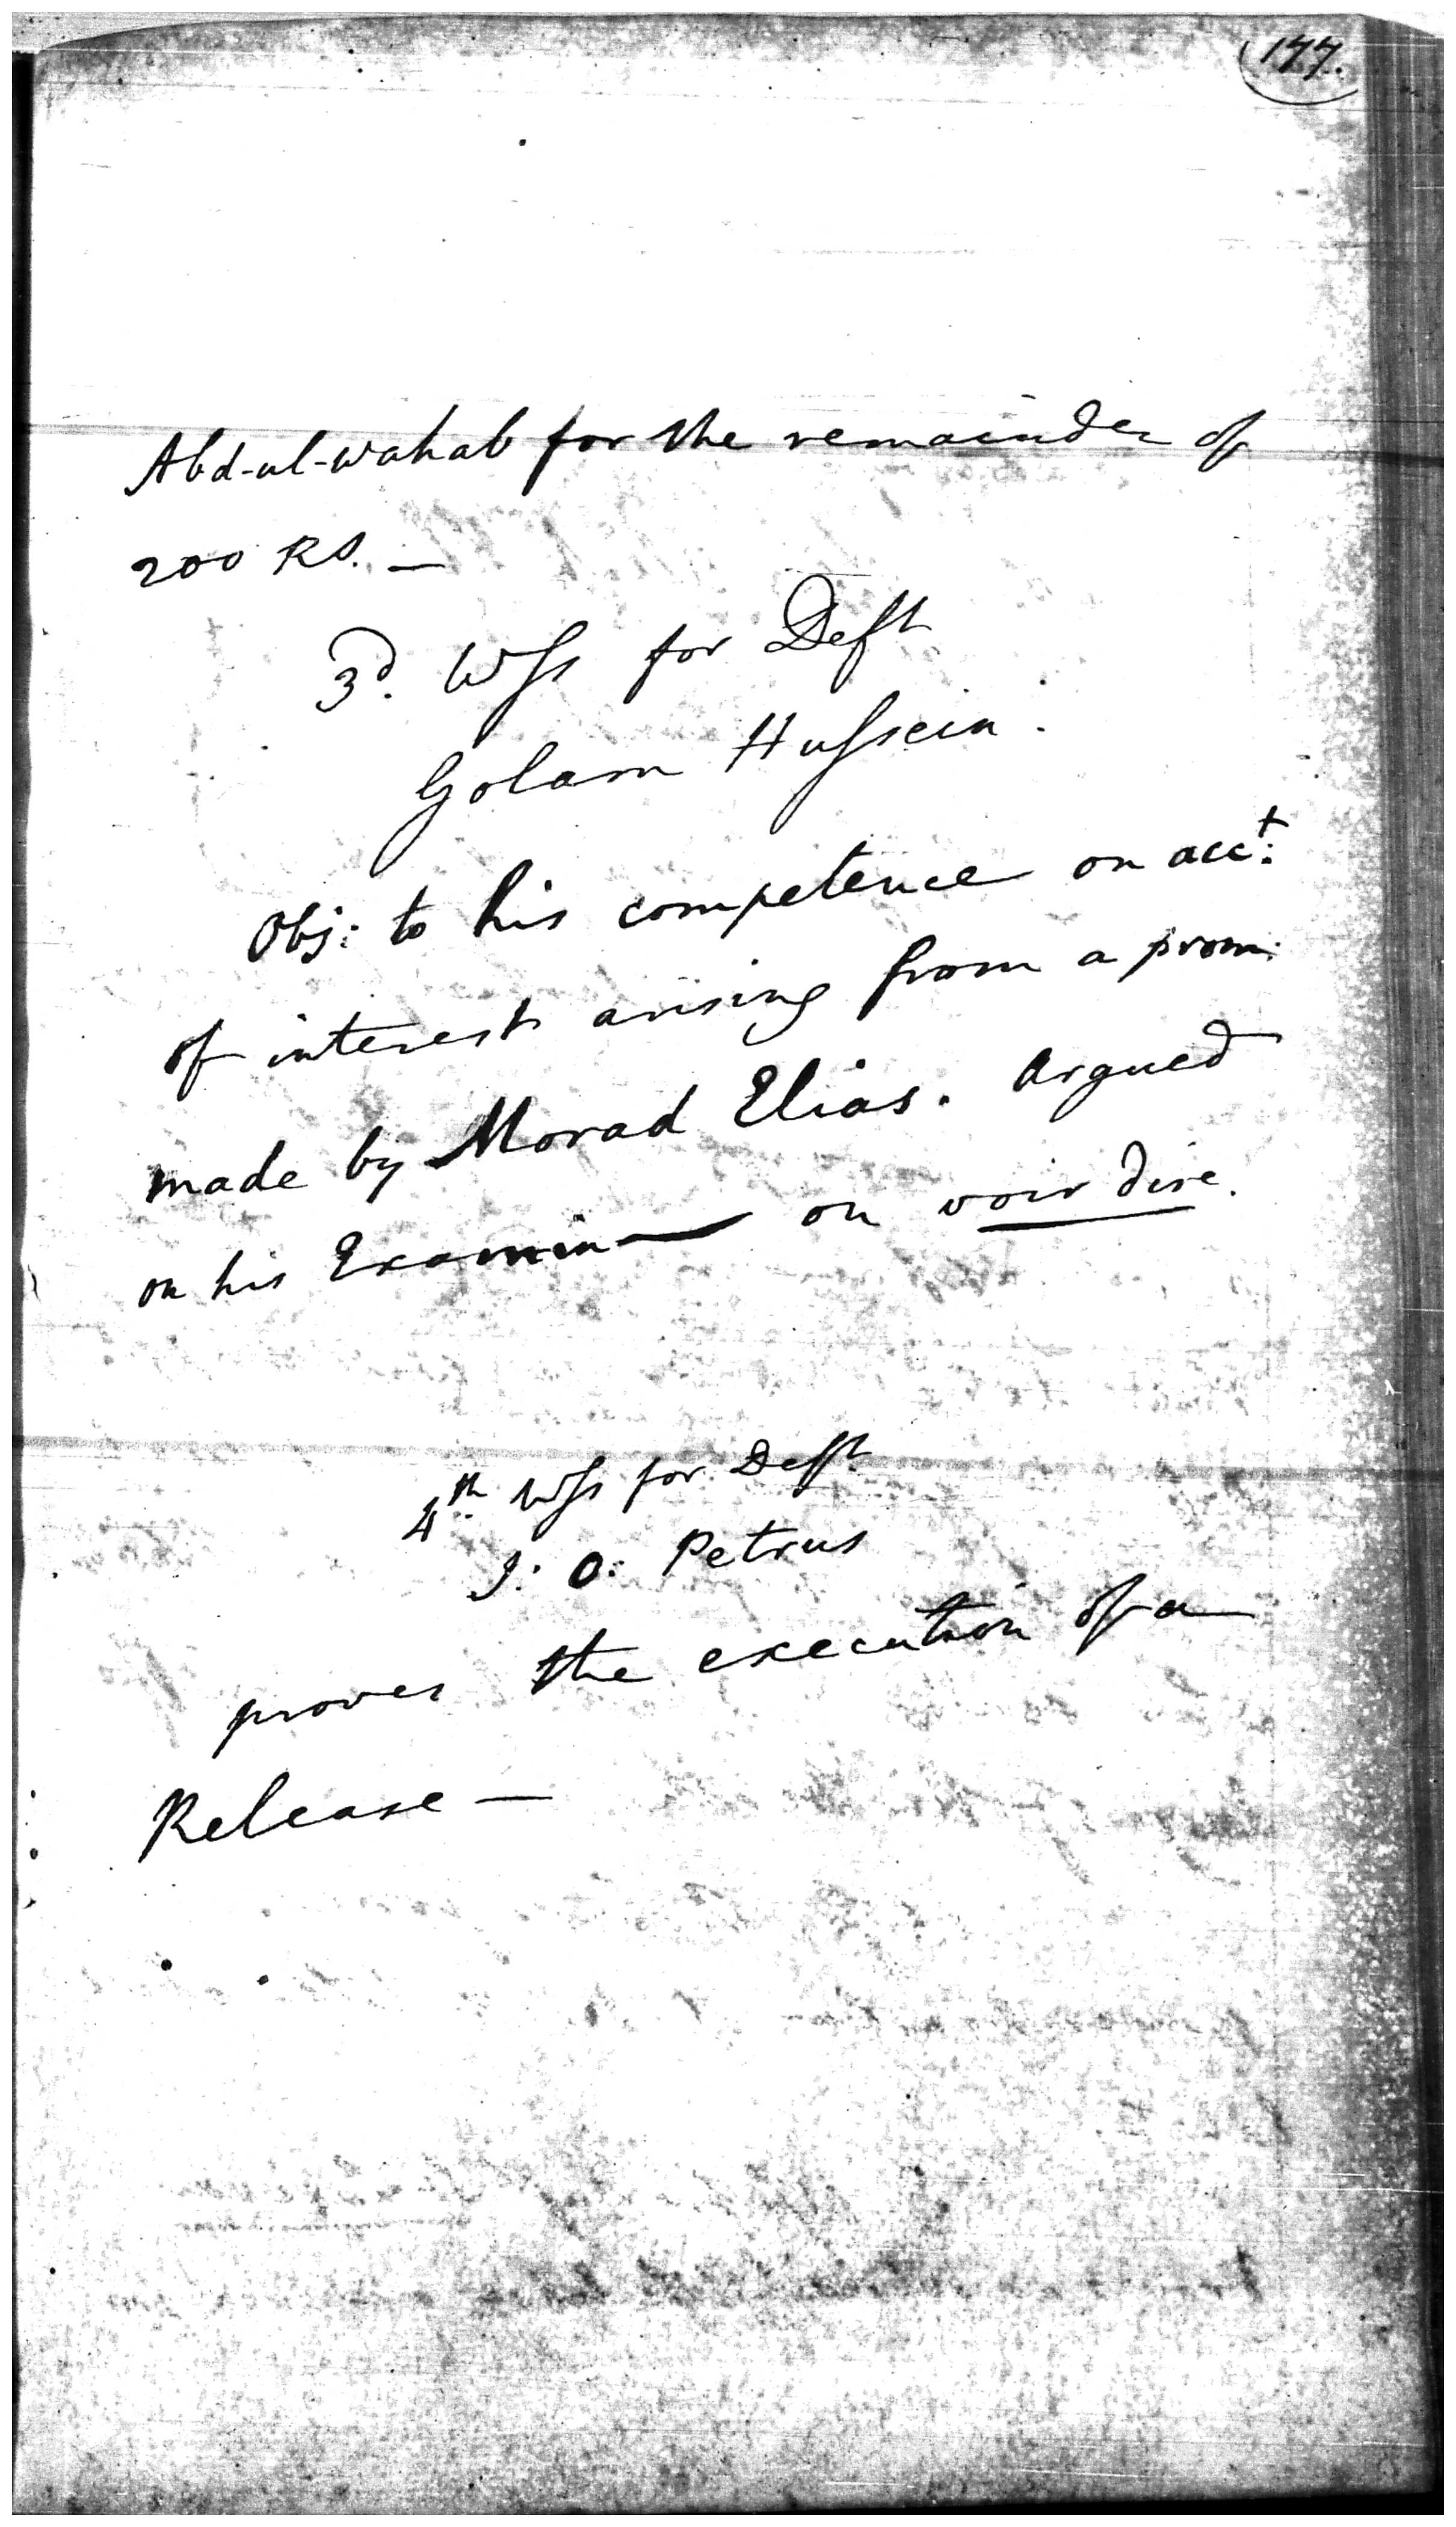 177.
Abd-ul-wahab for the remainder of
200 RS. —
3d. Wss for Deft
Golam Hussein.
Obj: to his competence on acct:
of interest arising from a prom:
made by Morad Elias. Argued
on his Examin— on voir dire.
4th. Wss for Deft
J: O: Petrus
proves the execution of a
Release —